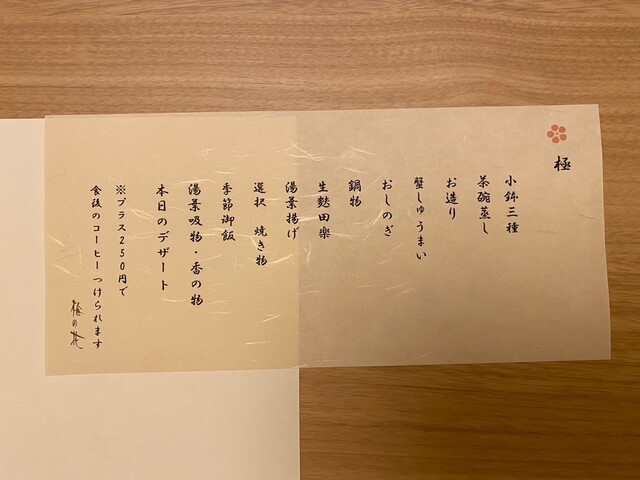 極
小鉢三種
茶碗蒸し
お造り
蟹しゅうまい
おしのぎ
鍋物
生麩田楽
湯葉揚げ
選択 焼き物
季節御飯
湯葉吸物・香の物
本日のデザート
※プラス250円で
食後のコーヒーつけられます
梅の花